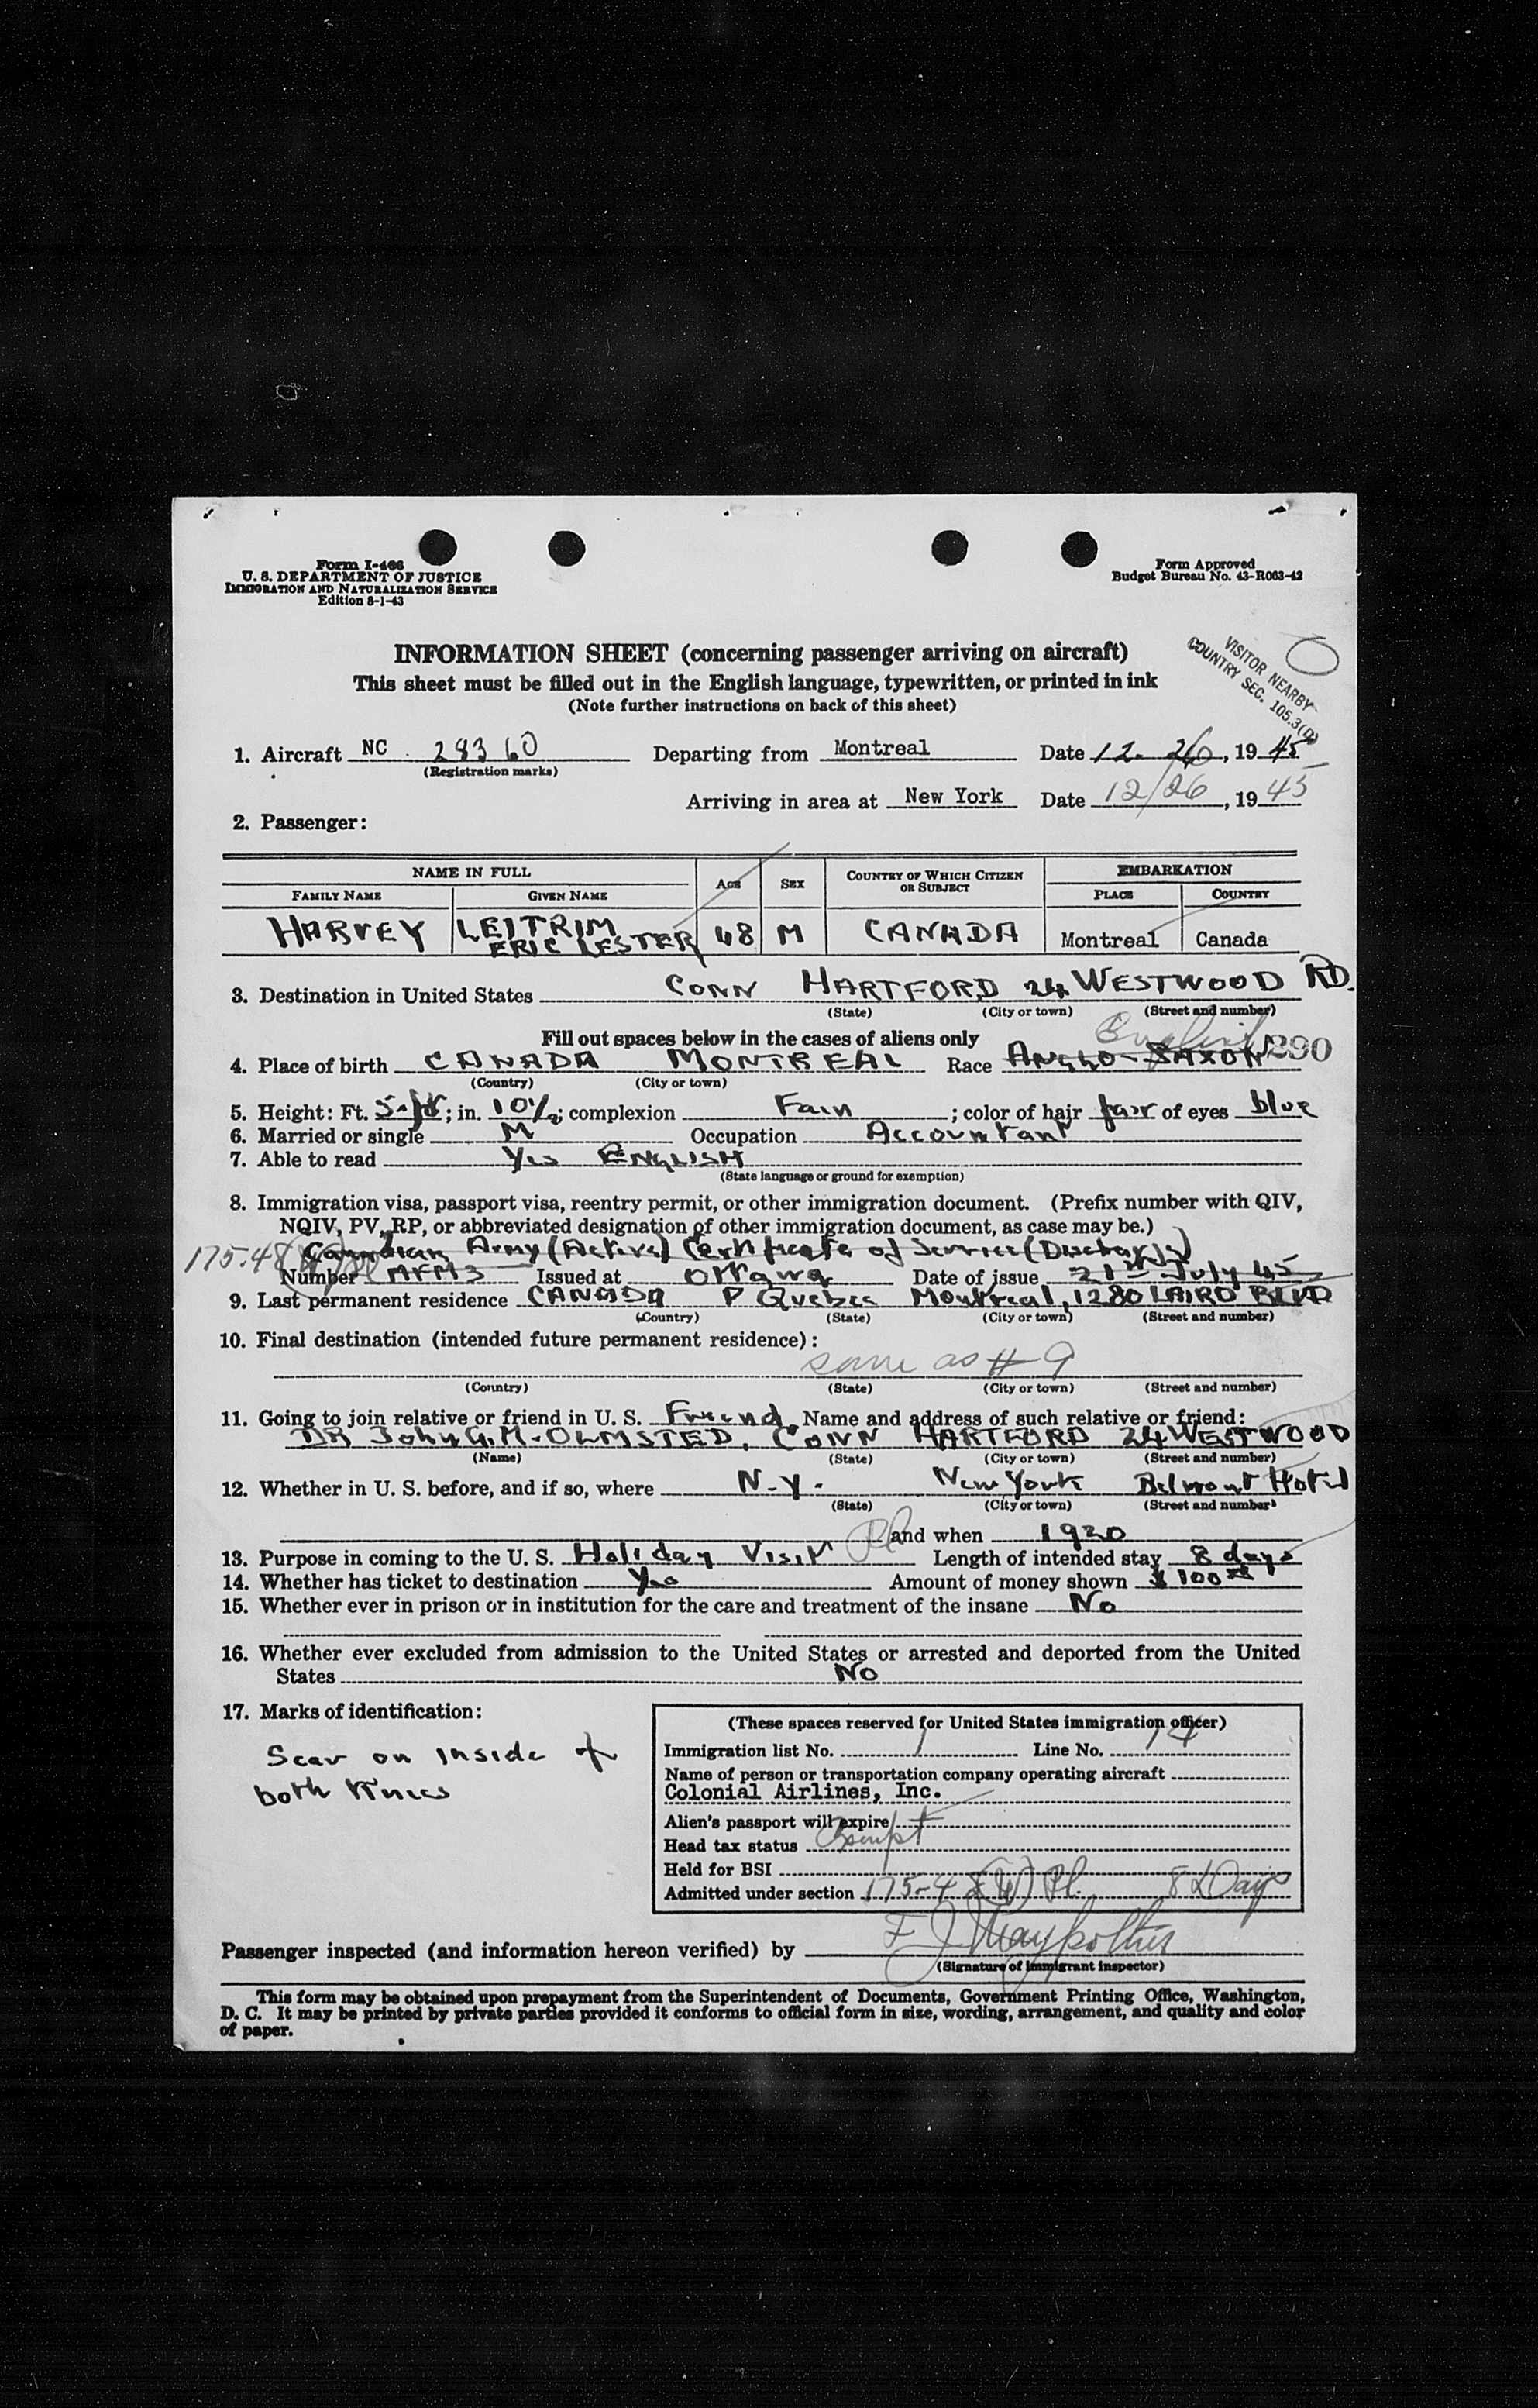 Form I-466
U. S. DEPARTMENT OF JUSTICE
IMMIGRATION AND NATURALIZATION SERVICE
Edition 8-1-43
Form Approved
Budget Bureau No. 43-R063-42
INFORMATION SHEET (concerning passenger arriving on aircraft)
This sheet must be filled out in the English language, typewritten, or printed in ink
(Note further instructions on back of this sheet)
VISITOR NEARBY
COUNTRY SEC. 105.3(D)
1. Aircraft NC 28360 Departing from Montreal Date 12-26, 1945
(Registration marks)
Arriving in area at New York Date 12/26, 1945
2. Passenger:
NAME IN FULL AGE SEX COUNTRY OF WHICH CITIZEN OR SUBJECT EMBARKATION
FAMILY NAME GIVEN NAME PLACE COUNTRY
HARVEY LEITRIM ERIC LESTER 48 M CANADA Montreal Canada
3. Destination in United States CONN HARTFORD 24 WESTWOOD RD.
(State) (City or town) (Street and number)
Fill out spaces below in the cases of aliens only English
4. Place of birth CANADA MONTREAL Race ANGLO-SAXON 290
(Country) (City or town)
5. Height: Ft. 5; in. 10½; complexion Fair; color of hair fair of eyes blue
6. Married or single M Occupation Accountant
7. Able to read Yes ENGLISH
(State language or ground for exemption)
8. Immigration visa, passport visa, reentry permit, or other immigration document. (Prefix number with QIV,
NQIV, PV, RP, or abbreviated designation of other immigration document, as case may be.)
175.48 Canadian Army (Active) Certificate of Service (Discharge)
Number MFM3 Issued at Ottawa Date of issue 21st July 45
9. Last permanent residence CANADA P Quebec Montreal, 1280 LAIRD BLVD
(Country) (State) (City or town) (Street and number)
10. Final destination (intended future permanent residence):
same as #9
(Country) (State) (City or town) (Street and number)
11. Going to join relative or friend in U. S. Friend Name and address of such relative or friend:
DR John G.M. OLMSTED, CONN HARTFORD 24 WESTWOOD
(Name) (State) (City or town) (Street and number)
12. Whether in U. S. before, and if so, where N.Y. New York Belmont Hotel
(State) (City or town) (Street and number)
and when 1920
13. Purpose in coming to the U. S. Holiday Visit Length of intended stay 8 days
14. Whether has ticket to destination Yes Amount of money shown $100
15. Whether ever in prison or in institution for the care and treatment of the insane No
16. Whether ever excluded from admission to the United States or arrested and deported from the United
States No
17. Marks of identification:
Scar on inside of
both Knees
(These spaces reserved for United States immigration officer)
Immigration list No. 1 Line No. 14
Name of person or transportation company operating aircraft
Colonial Airlines, Inc.
Alien's passport will expire
Head tax status Exempt
Held for BSI
Admitted under section 175-48 8 Days
Passenger inspected (and information hereon verified) by
(Signature of immigrant inspector)
This form may be obtained upon prepayment from the Superintendent of Documents, Government Printing Office, Washington,
D. C. It may be printed by private parties provided it conforms to official form in size, wording, arrangement, and quality and color
of paper.